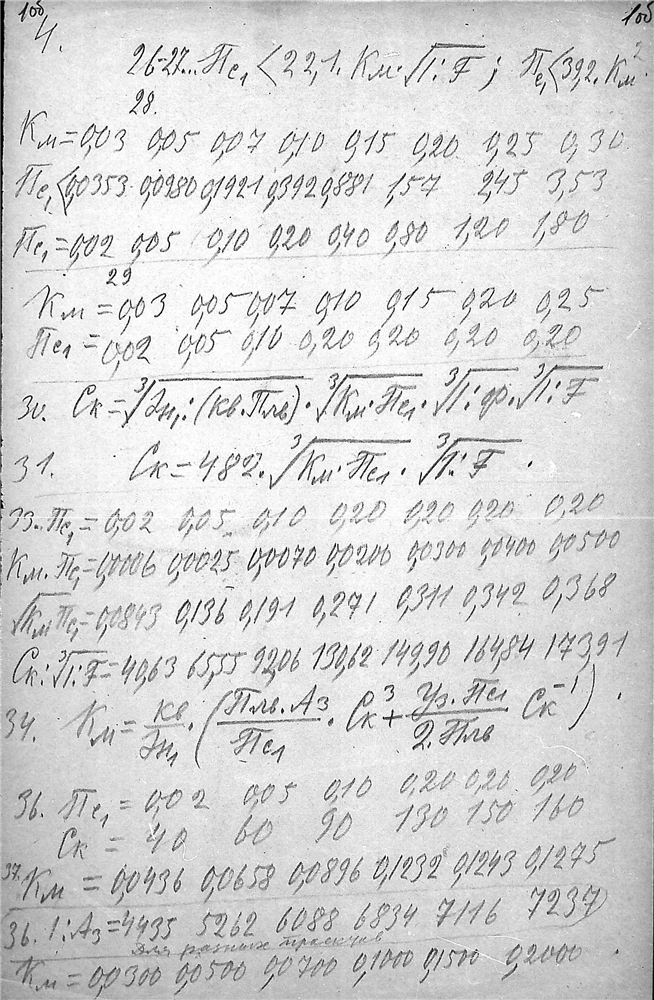 106 106
4.
26-27... Пс₁ < 22,1. Км·√1:F ; Пс₁ < 39,2. Км²
28.
Км = 0,03 0,05 0,07 0,10 0,15 0,20 0,25 0,30
Пс₁ < 0,0353 0,0980 0,1921 0,392 0,881 1,57 2,45 3,53
Пс₁ = 0,02 0,05 0,10 0,20 0,40 0,80 1,20 1,80
29
Км = 0,03 0,05 0,07 0,10 0,15 0,20 0,25
Пс₁ = 0,02 0,05 0,10 0,20 0,20 0,20 0,20
30. Ск = ∛Эн₁:(кв.Плв) · ∛Км·Пс₁ · ∛1:ф · ∛1:F
31. Ск = 482. ∛Км·Пс₁ · ∛1:F .
33. Пс₁ = 0,02 0,05 0,10 0,20 0,20 0,20 0,20
Км. Пс₁ = 0,0006 0,0025 0,0070 0,0200 0,0300 0,0400 0,0500
∛Км·Пс₁ = 0,0843 0,136 0,191 0,271 0,311 0,342 0,368
Ск:∛1:F = 40,63 65,55 92,06 130,62 149,90 164,84 173,91
34. Км = кв/Эн₁ · (Плв.Аз/Пс₁ · Ск³ + Уз.Пс₁/2.Плв Ск⁻¹) .
36. Пс₁ = 0,02 0,05 0,10 0,20 0,20 0,20
Ск = 40 60 90 130 150 160
37. Км = 0,0436 0,0658 0,0896 0,1232 0,1243 0,1275
36. 1:Аз = 4435 5262 6088 6834 7116 7237
для разных
Км = 0,0300 0,0500 0,0700 0,1000 0,1500 0,2000 .